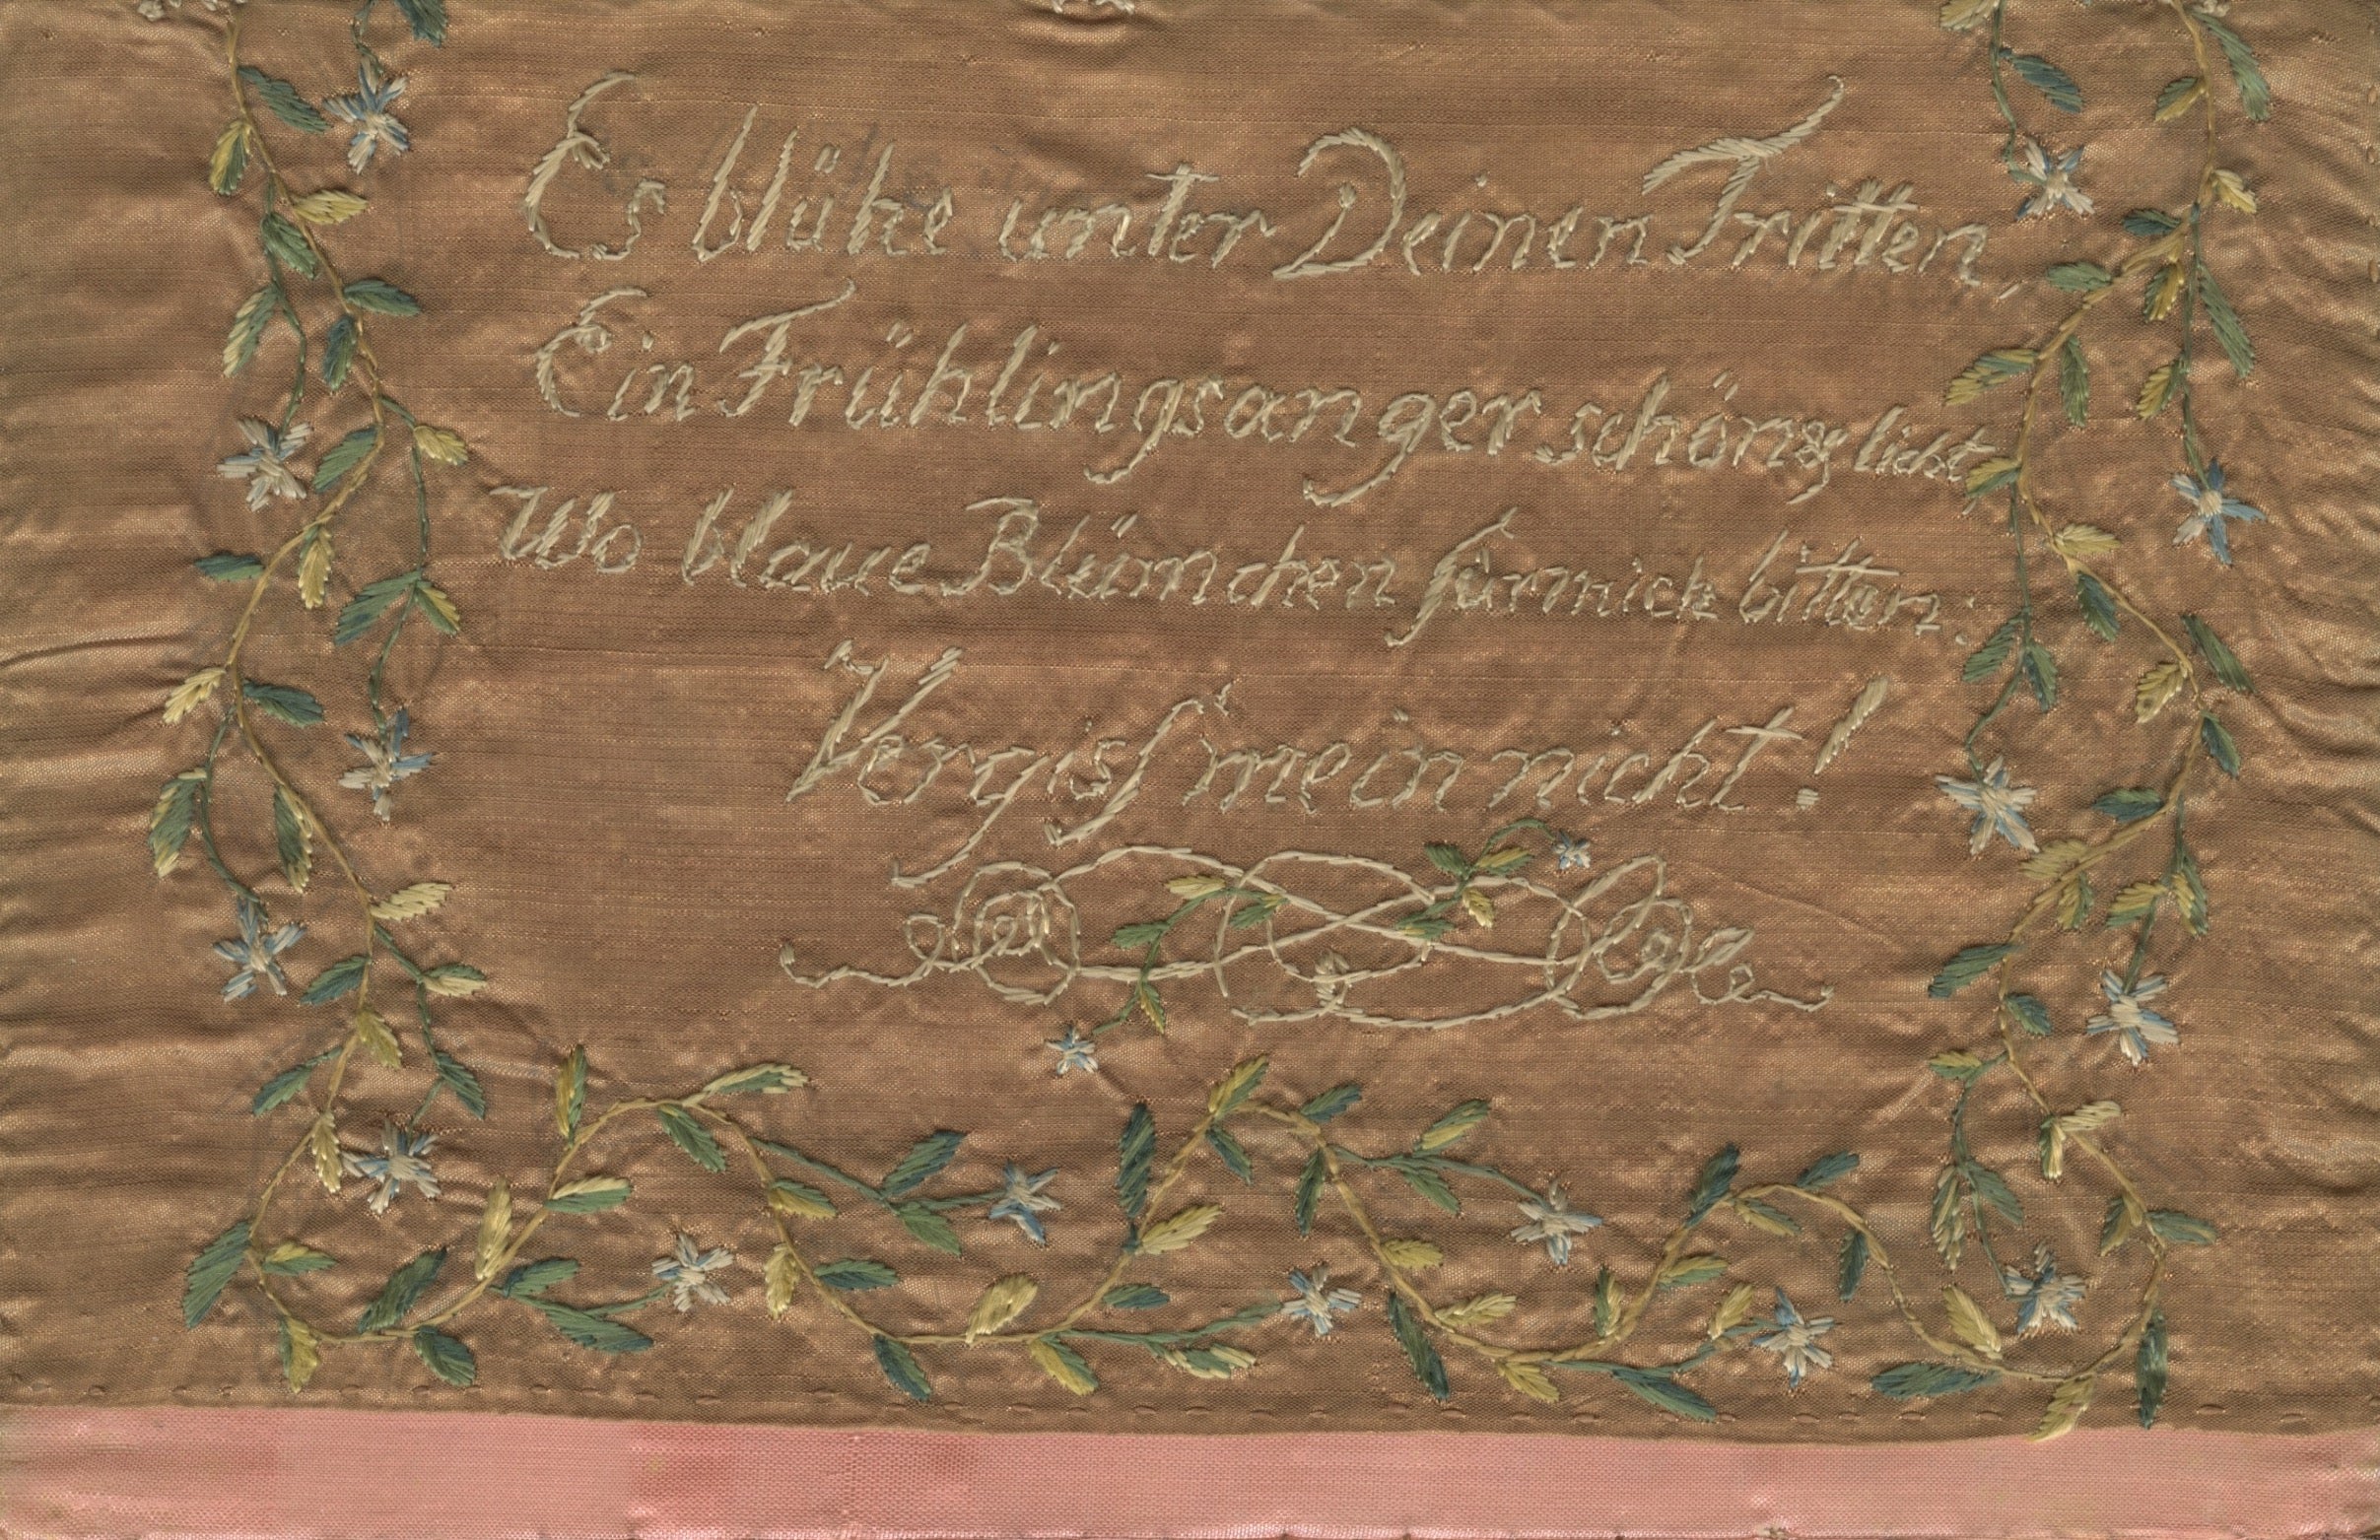 Es blühe unter Deinen Tritten,
Ein Frühlingsanger schön & licht
Wo blaue Blümchen für mich bitten:
Vergiſs mein nicht!